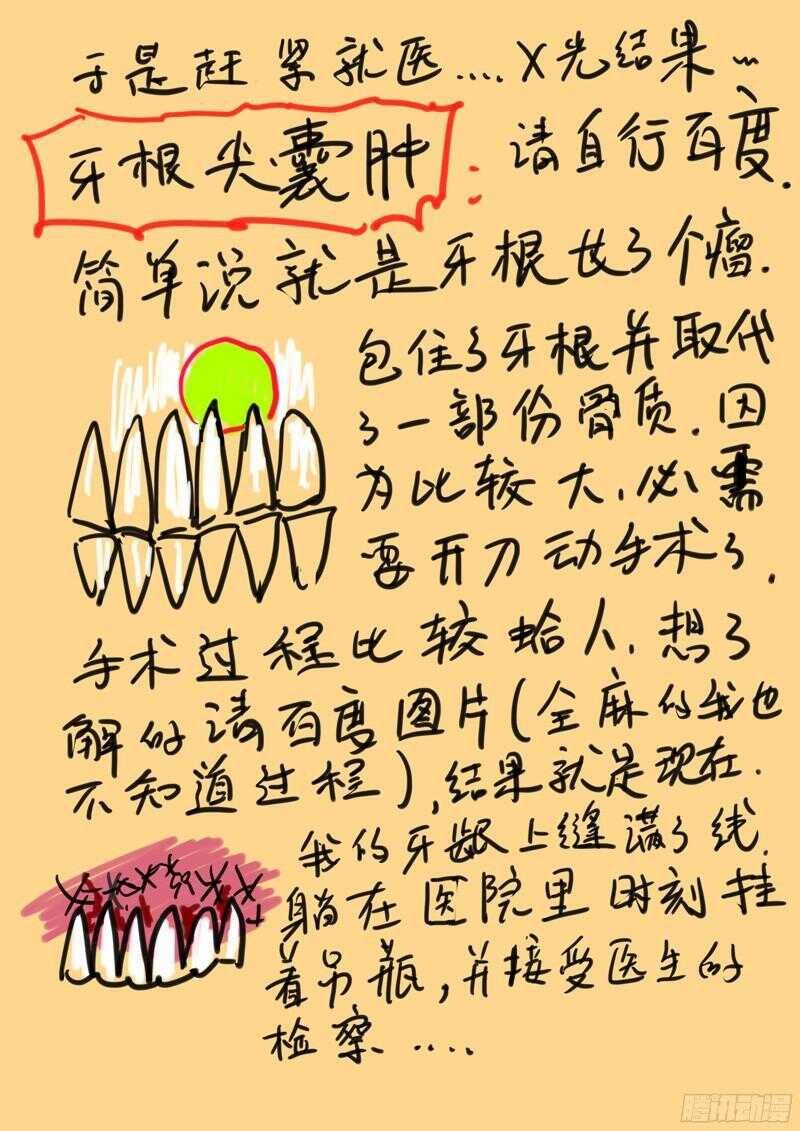 于是赶紧就医....X光结果...
牙根尖囊肿 请自行百度.
简单说就是牙根长了个瘤.
包住了牙根并取代
了一部份骨质.因
为比较大,必需
要开刀动手术了.
手术过程比较蛤人,想了
解的请百度图片(全麻的我也
不知道过程),结果就是现在.
我的牙龈上缝满了线.
躺在医院里时刻挂
着吊瓶,并接受医生的
检察....
腾讯动漫